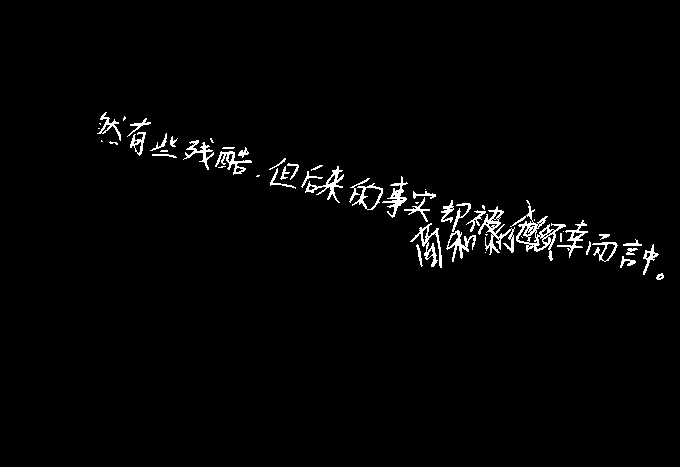 然有些残酷.但后来的事实却被
幸而言中。